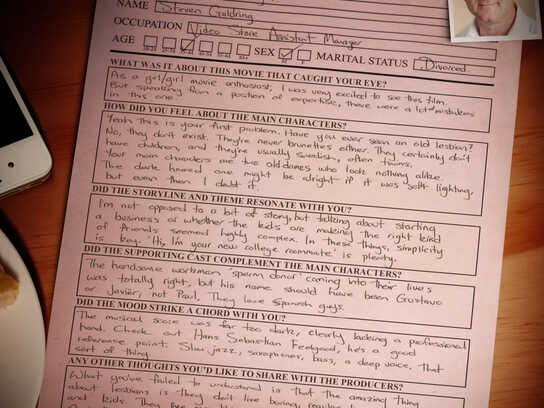 NAME Steven Goldring
OCCUPATION Video Store Assistant Manager
AGE SEX MARITAL STATUS Divorced
WHAT WAS IT ABOUT THIS MOVIE THAT CAUGHT YOUR EYE?
As a girl/girl movie enthusiast, I was very excited to see this film.
But speaking from a position of expertise, there were a lot of mistakes
in this one.
HOW DID YOU FEEL ABOUT THE MAIN CHARACTERS?
Yeah this is your first problem. Have you ever seen an old lesbian?
No, they don't exist. They're never brunettes either. They certainly don't
have children, and they're usually Swedish, often twins.
Your main characters are two old dames who look nothing alike.
The dark haired one might be alright if it was soft lighting,
but even then I doubt it.
DID THE STORYLINE AND THEME RESONATE WITH YOU?
I'm not opposed to a bit of story, but talking about starting
a business or whether the kids are making the right kind
of friends seemed highly complex. In these things, simplicity
is key. 'Hi, I'm your new college roommate' is plenty.
DID THE SUPPORTING CAST COMPLEMENT THE MAIN CHARACTERS?
The handsome workman sperm donor coming into their lives
was totally right, but his name should have been Gustavo
or Javier, not Paul. They love Spanish guys.
DID THE MOOD STRIKE A CHORD WITH YOU?
The musical score was far too dark, clearly lacking a professional
hand. Check out Hans Sebastian Feelgood, he's a good
reference point. Slow jazz, saxophones, bass, a deep voice. That
sort of thing.
ANY OTHER THOUGHTS YOU'D LIKE TO SHARE WITH THE PRODUCERS?
What you've failed to understand is that the amazing thing
about lesbians is they don't live boring, regular
and kids. They